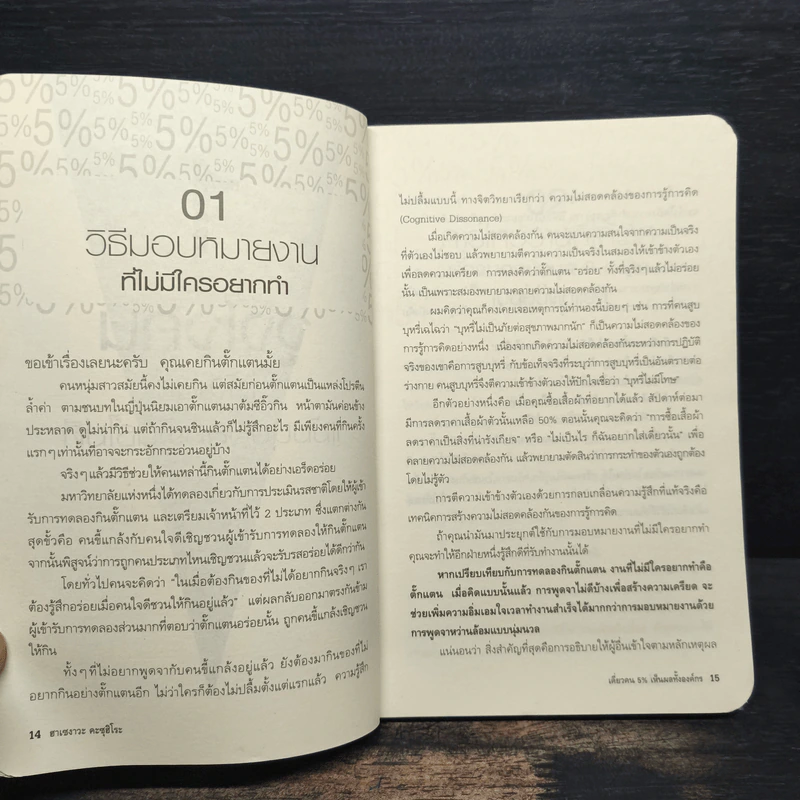 5% 5% 5% 5% 5% 5%
01
วิธีมอบหมายงาน
ที่ไม่มีใครอยากทำ
ขอเข้าเรื่องเลยนะครับ คุณเคยกินตั๊กแตนมั้ย
คนหนุ่มสาวสมัยนี้คงไม่เคยกิน แต่สมัยก่อนตั๊กแตนเป็นแหล่งโปรตีน
ล้ำค่า ตามชนบทในญี่ปุ่นนิยมเอาตั๊กแตนมาต้มซีอิ๊วกิน หน้าตามันค่อนข้าง
ประหลาด ดูไม่น่ากิน แต่ถ้ากินจนชินแล้วก็ไม่รู้สึกอะไร มีเพียงคนที่กินครั้ง
แรกๆ เท่านั้นที่อาจจะกระอักกระอ่วนอยู่บ้าง
จริงๆ แล้วมีวิธีช่วยให้คนเหล่านี้กินตั๊กแตนได้อย่างเอร็ดอร่อย
มหาวิทยาลัยแห่งหนึ่งได้ทดลองเกี่ยวกับการประเมินรสชาติโดยให้ผู้เข้า
รับการทดลองกินตั๊กแตน และเตรียมเจ้าหน้าที่ไว้ 2 ประเภท ซึ่งแตกต่างกัน
สุดขั้วคือ คนขี้แกล้งกับคนใจดีเชิญชวนผู้เข้ารับการทดลองให้กินตั๊กแตน
จากนั้นพิสูจน์ว่าการถูกคนประเภทไหนเชิญชวนแล้วจะรับรสอร่อยได้ดีกว่ากัน
โดยทั่วไปคนจะคิดว่า "ในเมื่อต้องกินของที่ไม่ได้อยากกินจริงๆ เรา
ต้องรู้สึกอร่อยเมื่อคนใจดีชวนให้กินอยู่แล้ว" แต่ผลกลับออกมาตรงกันข้าม
ผู้เข้ารับการทดลองส่วนมากที่ตอบว่าตั๊กแตนอร่อยนั้น ถูกคนขี้แกล้งเชิญชวน
ให้กิน
ทั้งๆ ที่ไม่อยากพูดจากับคนขี้แกล้งอยู่แล้ว ยังต้องมากินของที่ไม่
อยากกินอย่างตั๊กแตนอีก ไม่ว่าใครก็ต้องไม่ปลื้มตั้งแต่แรกแล้ว ความรู้สึก
14 ฮาเซงาวะ คะซุฮิโระ
ไม่ปลื้มแบบนี้ ทางจิตวิทยาเรียกว่า ความไม่สอดคล้องของการรู้การคิด
(Cognitive Dissonance)
เมื่อเกิดความไม่สอดคล้องกัน คนจะเบนความสนใจจากความเป็นจริง
ที่ตัวเองไม่ชอบ แล้วพยายามตีความความเป็นจริงในสมองให้เข้าข้างตัวเอง
เพื่อลดความเครียด การหลงคิดว่าตั๊กแตน "อร่อย" ทั้งที่จริงๆ แล้วไม่อร่อย
นั้น เป็นเพราะสมองพยายามคลายความไม่สอดคล้องกัน
ผมคิดว่าคุณก็คงเคยเจอเหตุการณ์ทำนองนี้บ่อยๆ เช่น การที่คนสูบ
บุหรี่เฉไฉว่า "บุหรี่ไม่เป็นภัยต่อสุขภาพมากนัก" ก็เป็นความไม่สอดคล้องของ
การรู้การคิดอย่างหนึ่ง เนื่องจากเกิดความไม่สอดคล้องกันระหว่างการปฏิบัติ
จริงของเขาคือการสูบบุหรี่ กับข้อเท็จจริงที่ระบุว่าการสูบบุหรี่เป็นอันตรายต่อ
ร่างกาย คนสูบบุหรี่จึงตีความเข้าข้างตัวเองให้ปักใจเชื่อว่า "บุหรี่ไม่มีโทษ"
อีกตัวอย่างหนึ่งคือ เมื่อคุณซื้อเสื้อผ้าที่อยากได้แล้ว สัปดาห์ต่อมา
มีการลดราคาเสื้อผ้าตัวนั้นเหลือ 50% ตอนนั้นคุณจะคิดว่า "การซื้อเสื้อผ้า
ลดราคาเป็นสิ่งที่น่ารังเกียจ" หรือ "ไม่เป็นไร ก็ฉันอยากใส่เดี๋ยวนั้น" เพื่อ
คลายความไม่สอดคล้องกัน แล้วพยายามตัดสินว่าการกระทำของตัวเองถูกต้อง
โดยไม่รู้ตัว
การตีความเข้าข้างตัวเองด้วยการกลบเกลื่อนความรู้สึกที่แท้จริงคือ
เทคนิคการสร้างความไม่สอดคล้องของการรู้การคิด
ถ้าคุณนำมันมาประยุกต์ใช้กับการมอบหมายงานที่ไม่มีใครอยากทำ
คุณจะทำให้อีกฝ่ายหนึ่งรู้สึกดีที่รับทำงานนั้นได้
หากเปรียบเทียบกับการทดลองกินตั๊กแตน งานที่ไม่มีใครอยากทำคือ
ตั๊กแตน เมื่อคิดแบบนั้นแล้ว การพูดจาไม่ดีบ้างเพื่อสร้างความเครียด จะ
ช่วยเพิ่มความอิ่มเอมใจเวลาทำงานสำเร็จได้มากกว่าการมอบหมายงานด้วย
การพูดจาหว่านล้อมแบบนุ่มนวล
แน่นอนว่า สิ่งสำคัญที่สุดคือการอธิบายให้ผู้อื่นเข้าใจตามหลักเหตุผล
เคี่ยวคน 5% เห็นผลทั้งองค์กร 15